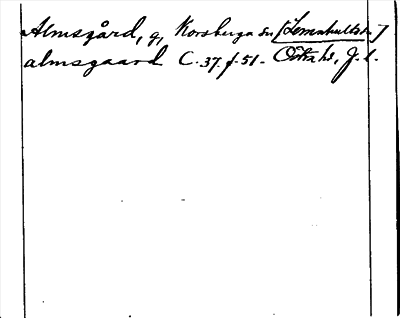 Almsgård, g, Korsberga sn [Lemnhults sn]
almsgaard C. 37. f. 51 - Östra hd, J. l.